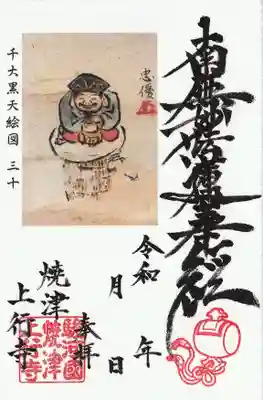 南無妙法蓮華経
千大黒天絵図 三十
忠優
令和 年
月 日
奉拝
焼津
上行寺
駿河國
焼津
上行寺